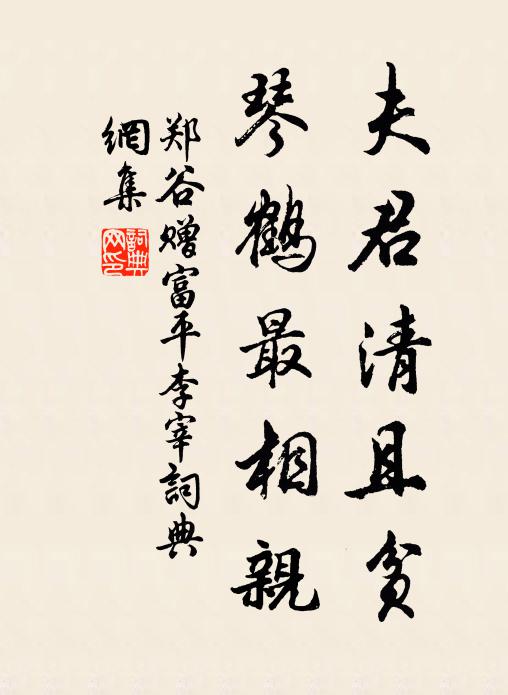 夫君清且貧
琴鶴最相親
郑谷赠富平李宰詞典
網集
詞典
网印